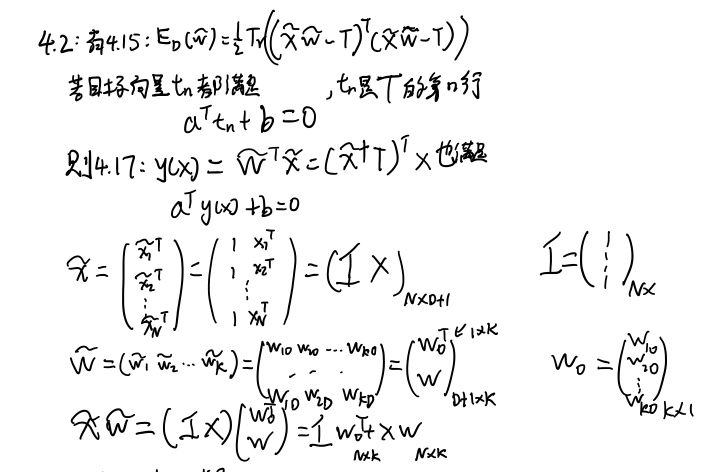 4.2: 由4.15: E_D(w̃)=½Tr((x̃w̃-T)ᵀ(x̃w̃-T))
若目标向量tₙ都满足 , tₙ是T的第n行
aᵀtₙ+b=0
则4.17: y(x)=W̃ᵀx̃=(x̃†T)ᵀx也满足
aᵀy(x)+b=0
x̃=(x̃₁ᵀ x̃₂ᵀ ⋮ x̃_Nᵀ)=(1 x₁ᵀ 1 x₂ᵀ ⋮ 1 x_Nᵀ)=(I X)_{N×D+1} I=(1 ⋮ 1)_{N×}
W̃=(w̃₁ w̃₂ ⋯ w̃_K)=(w₁₀ w₂₀ ⋯ w_{K0} ⋯ w_{1D} w_{2D} w_{KD})=(w₀ᵀ W)_{D+1×K} ←1×K w₀=(w₁₀ w₂₀ ⋮ w_{K0})_{K×1}
x̃w̃=(I X)(w₀ᵀ W)=I w₀ᵀ_{N×K}+XW_{N×K}